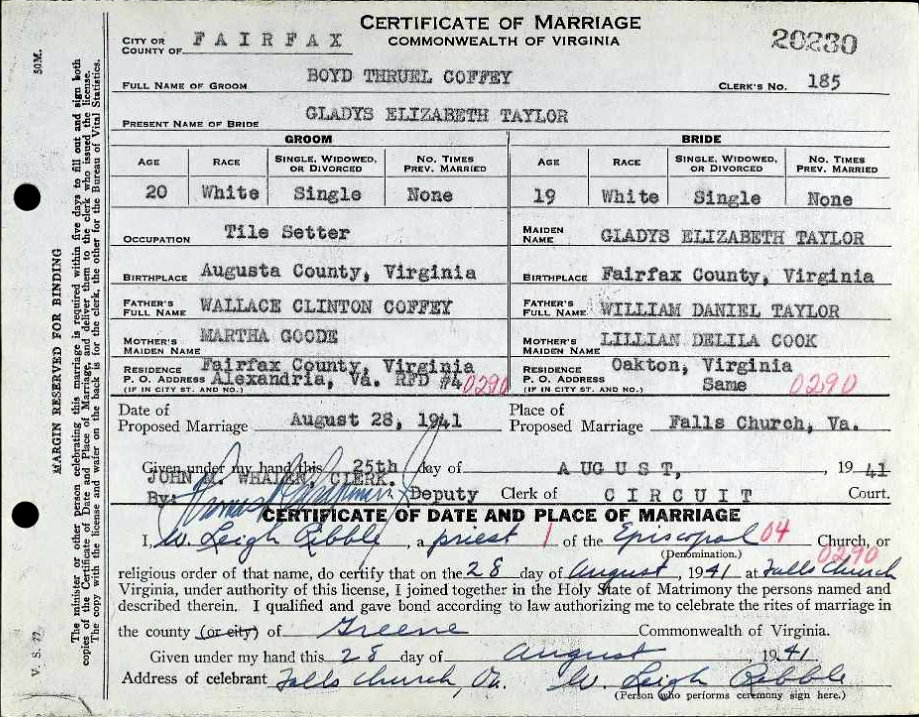 CERTIFICATE OF MARRIAGE
COMMONWEALTH OF VIRGINIA
CITY OR COUNTY OF FAIRFAX
20230
FULL NAME OF GROOM BOYD THRUEL COFFEY CLERK'S NO. 185
PRESENT NAME OF BRIDE GLADYS ELIZABETH TAYLOR
GROOM BRIDE
AGE RACE SINGLE, WIDOWED, OR DIVORCED NO. TIMES PREV. MARRIED AGE RACE SINGLE, WIDOWED, OR DIVORCED NO. TIMES PREV. MARRIED
20 White Single None 19 White Single None
OCCUPATION Tile Setter MAIDEN NAME GLADYS ELIZABETH TAYLOR
BIRTHPLACE Augusta County, Virginia BIRTHPLACE Fairfax County, Virginia
FATHER'S FULL NAME WALLACE CLINTON COFFEY FATHER'S FULL NAME WILLIAM DANIEL TAYLOR
MOTHER'S MAIDEN NAME MARTHA GOODE MOTHER'S MAIDEN NAME LILLIAN DELILA COOK
RESIDENCE Fairfax County, Virginia RESIDENCE Oakton, Virginia
P. O. ADDRESS Alexandria, Va. RFD #4 0290 P. O. ADDRESS Same 0290
(IF IN CITY ST. AND NO.) (IF IN CITY ST. AND NO.)
Date of Proposed Marriage August 28, 1941 Place of Proposed Marriage Falls Church, Va.
Given under my hand this 25th day of AUGUST, 1941
JOHN M. WHALEN, CLERK.
By: Deputy Clerk of CIRCUIT Court.
CERTIFICATE OF DATE AND PLACE OF MARRIAGE
I, W. Leigh Ribble, a priest 1 of the Episcopal 04 Church, or
(Denomination.) 0290
religious order of that name, do certify that on the 28 day of August, 1941 at Falls Church
Virginia, under authority of this license, I joined together in the Holy State of Matrimony the persons named and
described therein. I qualified and gave bond according to law authorizing me to celebrate the rites of marriage in
the county (or city) of Greene Commonwealth of Virginia.
Given under my hand this 28 day of August 1941.
Address of celebrant Falls Church, Va. W. Leigh Ribble
(Person who performs ceremony sign here.)
MARGIN RESERVED FOR BINDING
The minister or other person celebrating this marriage is required within five days to fill out and sign both
copies of the Certificate of Date and Place of Marriage, and deliver them to the clerk who issued the license.
The copy with the license and waiver on the back is for the clerk, the other for the Bureau of Vital Statistics.
50M.
V. S. 77